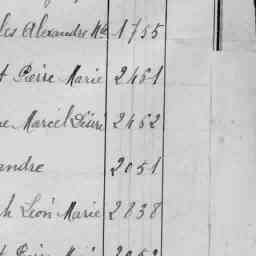 les Alexandre Mie 1755
t Pierre Marie 2461
ne Marcel Désiré 2462
andre 2051
h Léon Marie 2038